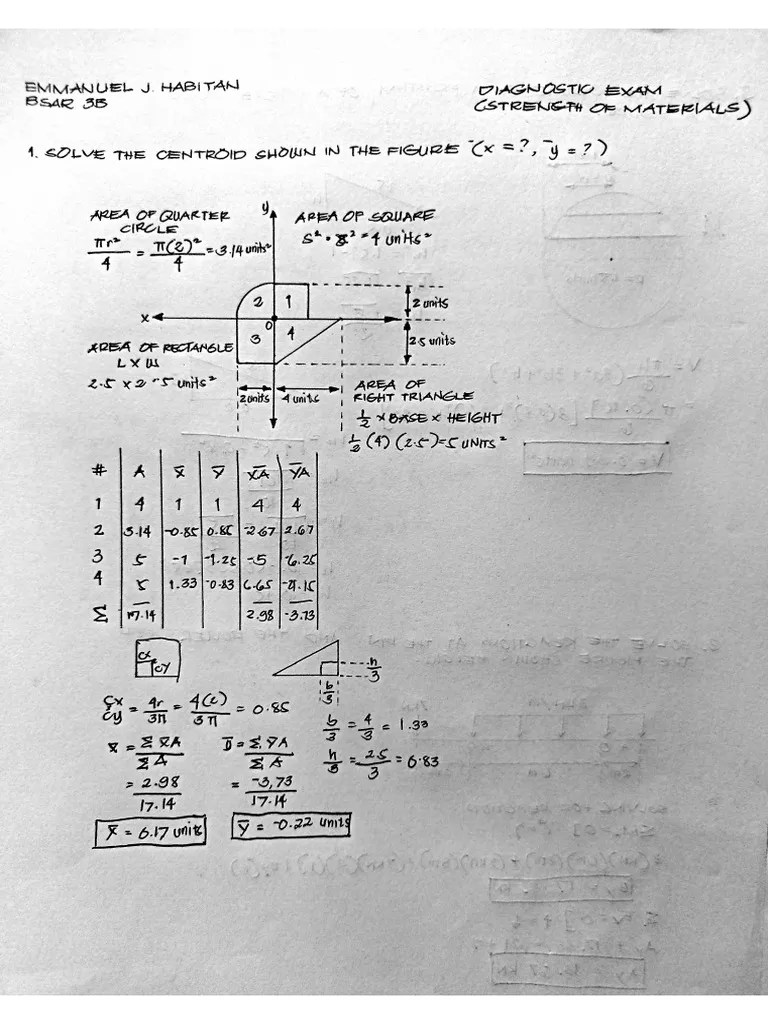 EMMANUEL J. HABITAN
BSAR 3B
DIAGNOSTIC EXAM
(STRENGTH OF MATERIALS)
1. SOLVE THE CENTROID SHOWN IN THE FIGURE ‾(x = ?, ‾y = ?)
AREA OF QUARTER
CIRCLE
πr²/4 = π(2)²/4 = 3.14 units²
y
AREA OF SQUARE
S² = 2² = 4 units²
2
1
2 units
x
0
3
4
2.5 units
AREA OF RECTANGLE
L x W
2.5 x 2 = 5 units²
2 units
4 units
AREA OF
RIGHT TRIANGLE
1/2 x BASE x HEIGHT
1/2 (4) (2.5) = 5 UNITS²
# A x̄ ȳ x̄A ȳA
1 4 1 1 4 4
2 3.14 -0.85 0.85 -2.67 2.67
3 5 -1 -1.25 -5 -6.25
4 5 1.33 -0.83 6.65 -4.15
Σ 17.14 2.98 -3.73
Cx
Cy
h/3
b/3
Cx
Cy = 4r/3π = 4(2)/3π = 0.85
b/3 = 4/3 = 1.33
h/3 = 2.5/3 = 0.83
x̄ = Σx̄A/ΣA
= ΣȳA/ΣA
= 2.98/17.14
= -3,73/17.14
x̄ = 0.17 units
ȳ = -0.22 units